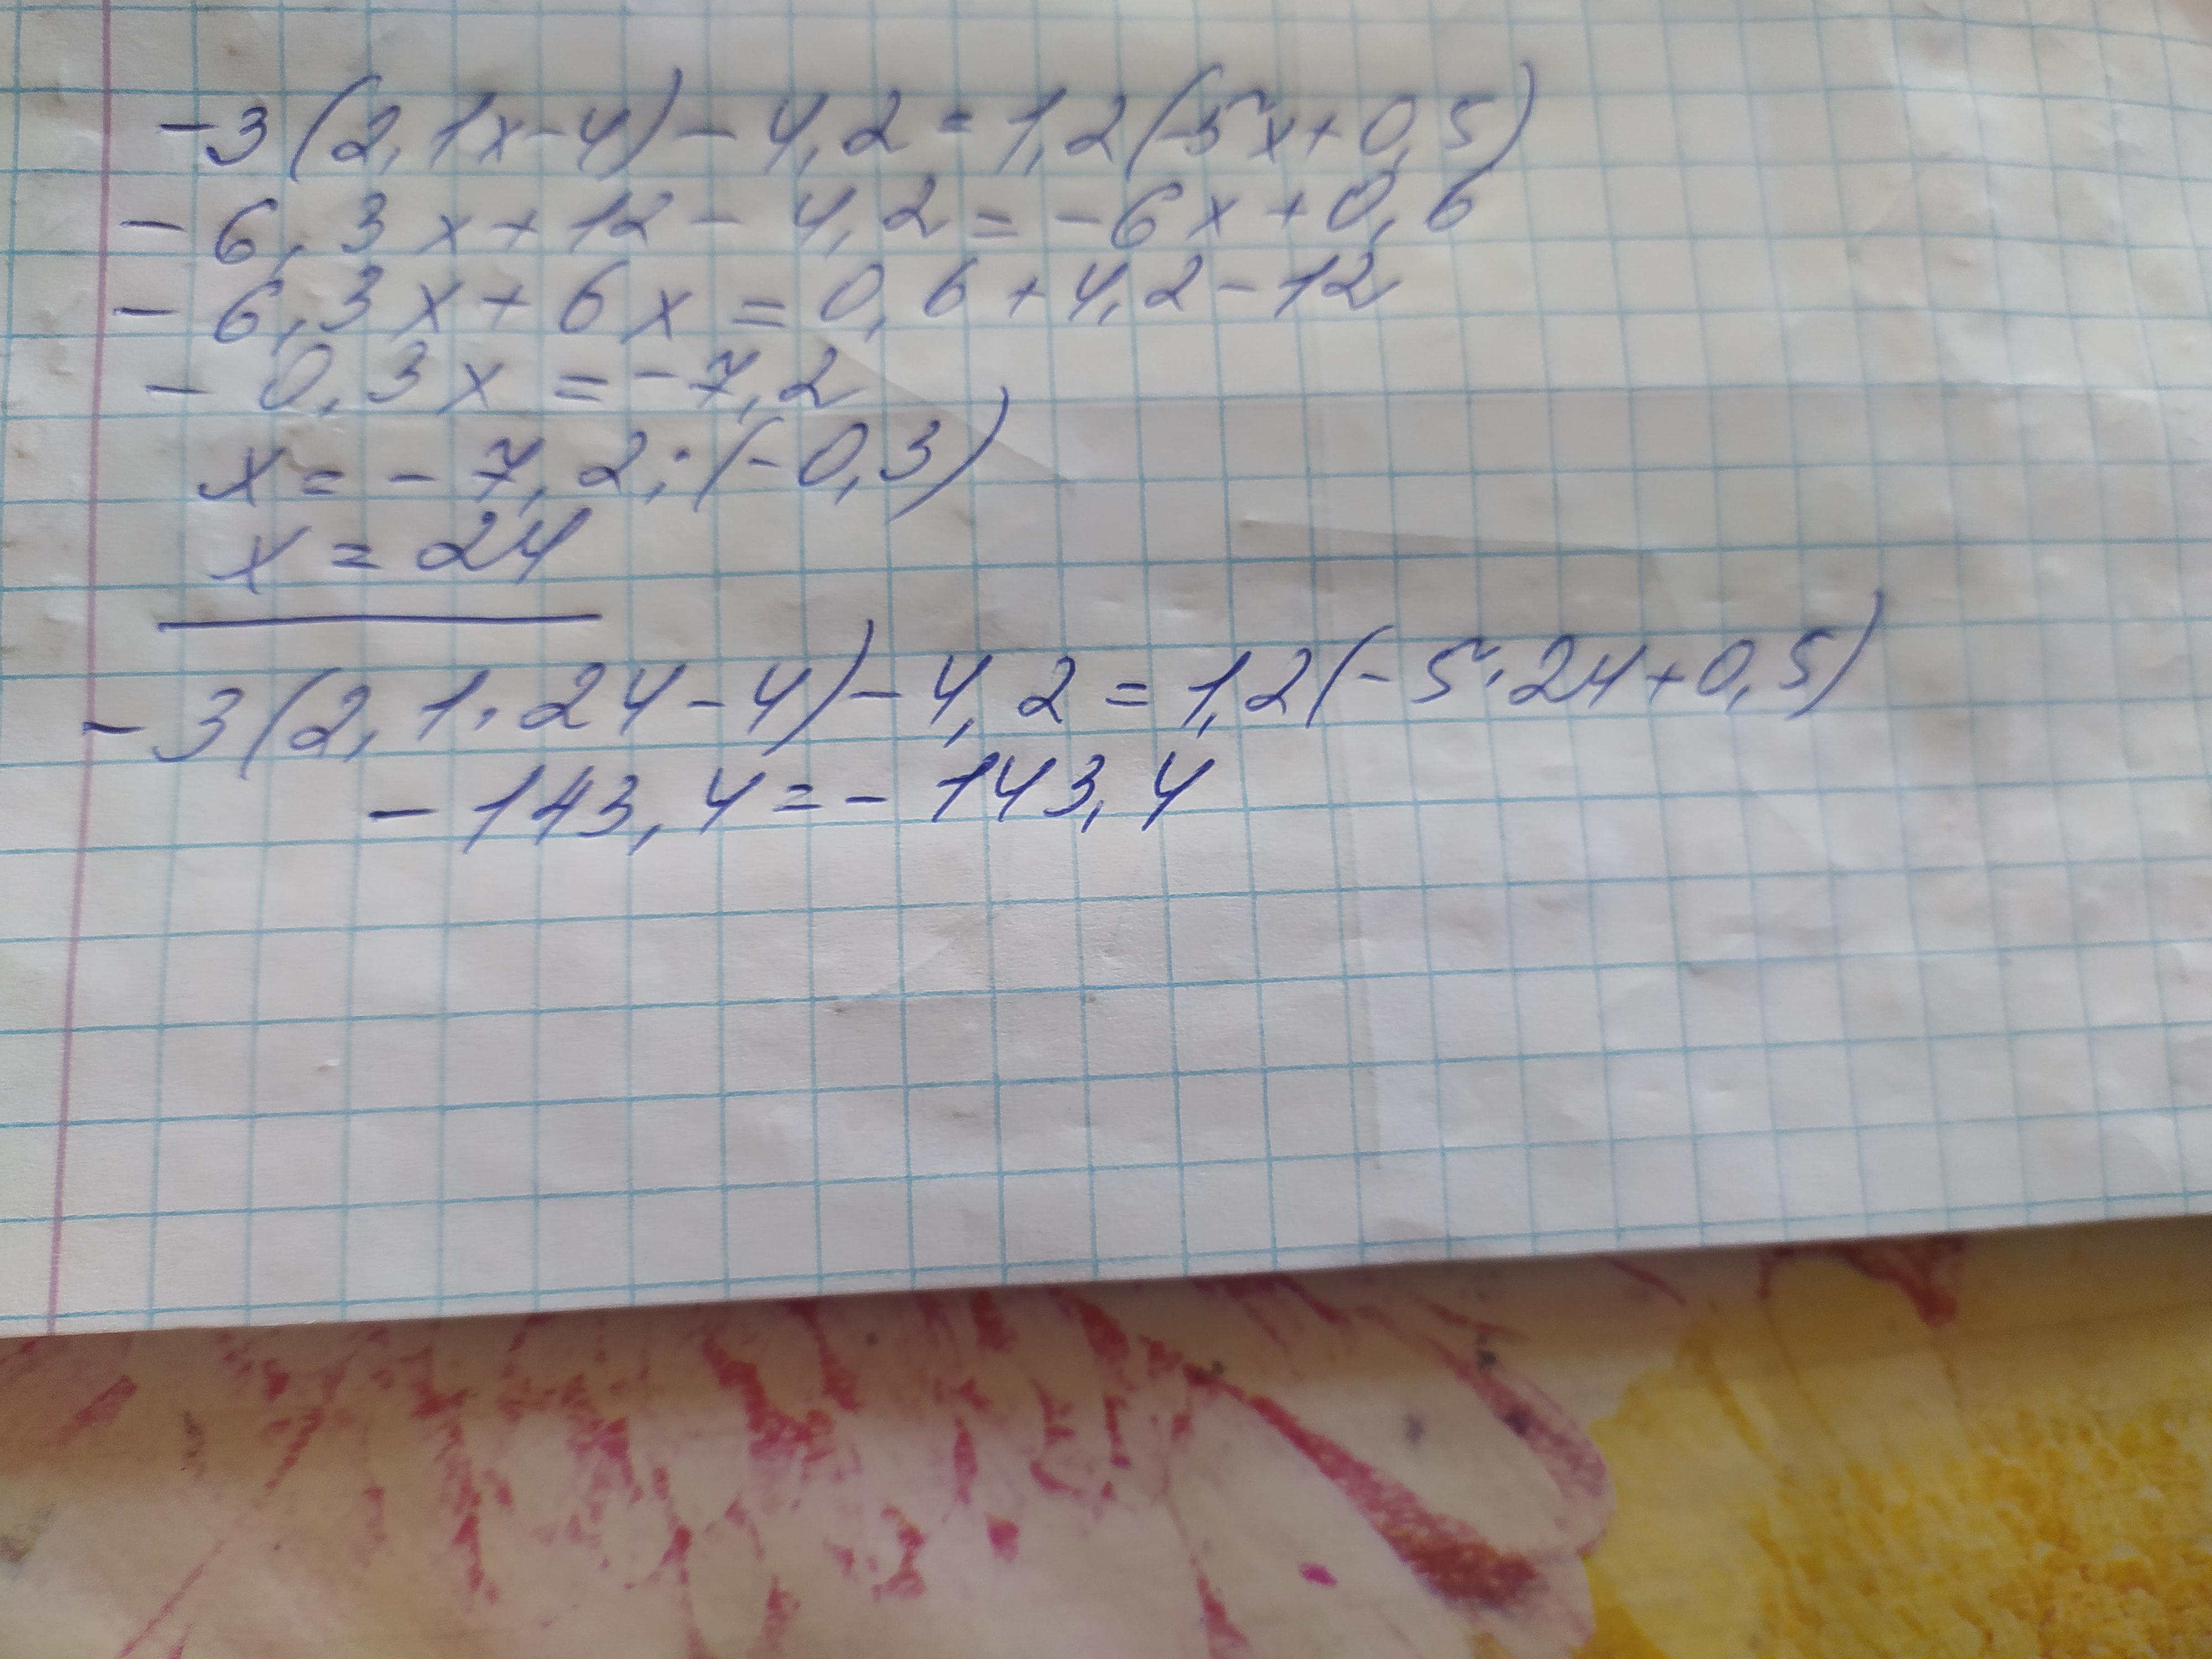 -3(2,1x-4)-4,2=1,2(-5x+0,5)
-6,3x+12-4,2=-6x+0,6
-6,3x+6x=0,6+4,2-12
-0,3x=-7,2
x=-7,2:(-0,3)
x=24
-3(2,1·24-4)-4,2=1,2(-5·24+0,5)
-143,4=-143,4